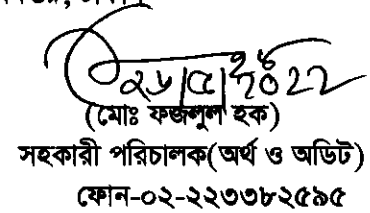 ২৬/৫/2022
(মোঃ ফজলুল হক)
সহকারী পরিচালক(অর্থ ও অডিট)
ফোন-০২-২২৩৩৮২৫৯৫